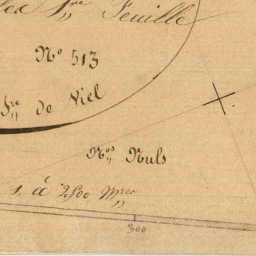 Feuille
N° 513
de Viel
Nos Nuls
à 2500
300